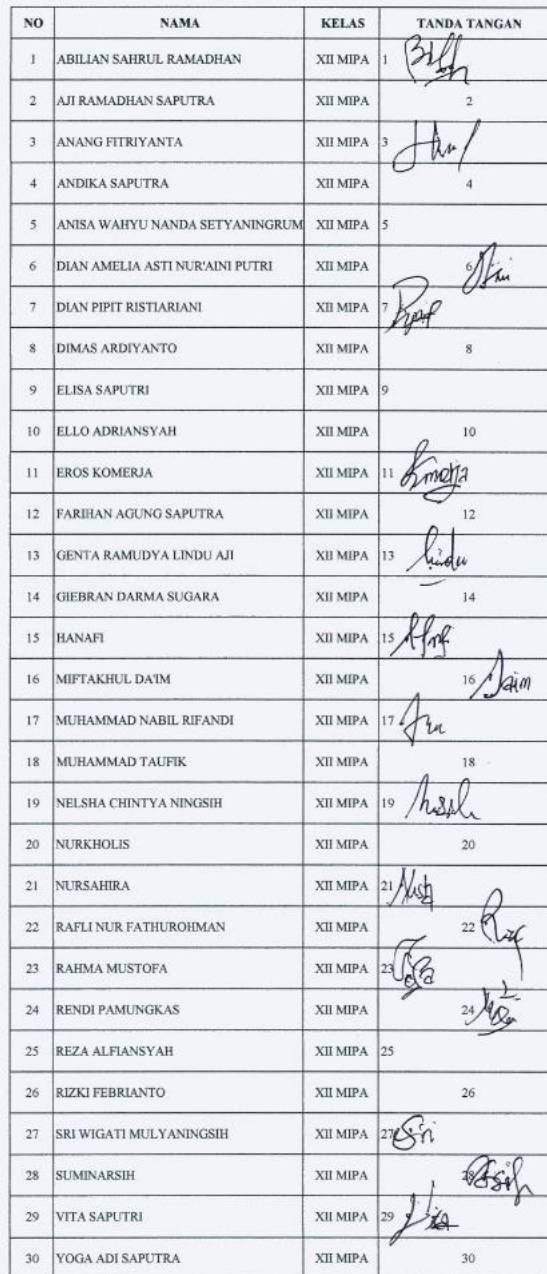 NO NAMA KELAS TANDA TANGAN
1 ABILIAN SAHRUL RAMADHAN XII MIPA 1
2 AJI RAMADHAN SAPUTRA XII MIPA 2
3 ANANG FITRIYANTA XII MIPA 3
4 ANDIKA SAPUTRA XII MIPA 4
5 ANISA WAHYU NANDA SETYANINGRUM XII MIPA 5
6 DIAN AMELIA ASTI NUR'AINI PUTRI XII MIPA 6
7 DIAN PIPIT RISTIARIANI XII MIPA 7
8 DIMAS ARDIYANTO XII MIPA 8
9 ELISA SAPUTRI XII MIPA 9
10 ELLO ADRIANSYAH XII MIPA 10
11 EROS KOMERJA XII MIPA 11 Kmerja
12 FARIHAN AGUNG SAPUTRA XII MIPA 12
13 GENTA RAMUDYA LINDU AJI XII MIPA 13 lindu
14 GIEBRAN DARMA SUGARA XII MIPA 14
15 HANAFI XII MIPA 15
16 MIFTAKHUL DA'IM XII MIPA 16 Daim
17 MUHAMMAD NABIL RIFANDI XII MIPA 17
18 MUHAMMAD TAUFIK XII MIPA 18
19 NELSHA CHINTYA NINGSIH XII MIPA 19
20 NURKHOLIS XII MIPA 20
21 NURSAHIRA XII MIPA 21
22 RAFLI NUR FATHUROHMAN XII MIPA 22
23 RAHMA MUSTOFA XII MIPA 23
24 RENDI PAMUNGKAS XII MIPA 24
25 REZA ALFIANSYAH XII MIPA 25
26 RIZKI FEBRIANTO XII MIPA 26
27 SRI WIGATI MULYANINGSIH XII MIPA 27 Sri
28 SUMINARSIH XII MIPA 28
29 VITA SAPUTRI XII MIPA 29 Vita
30 YOGA ADI SAPUTRA XII MIPA 30